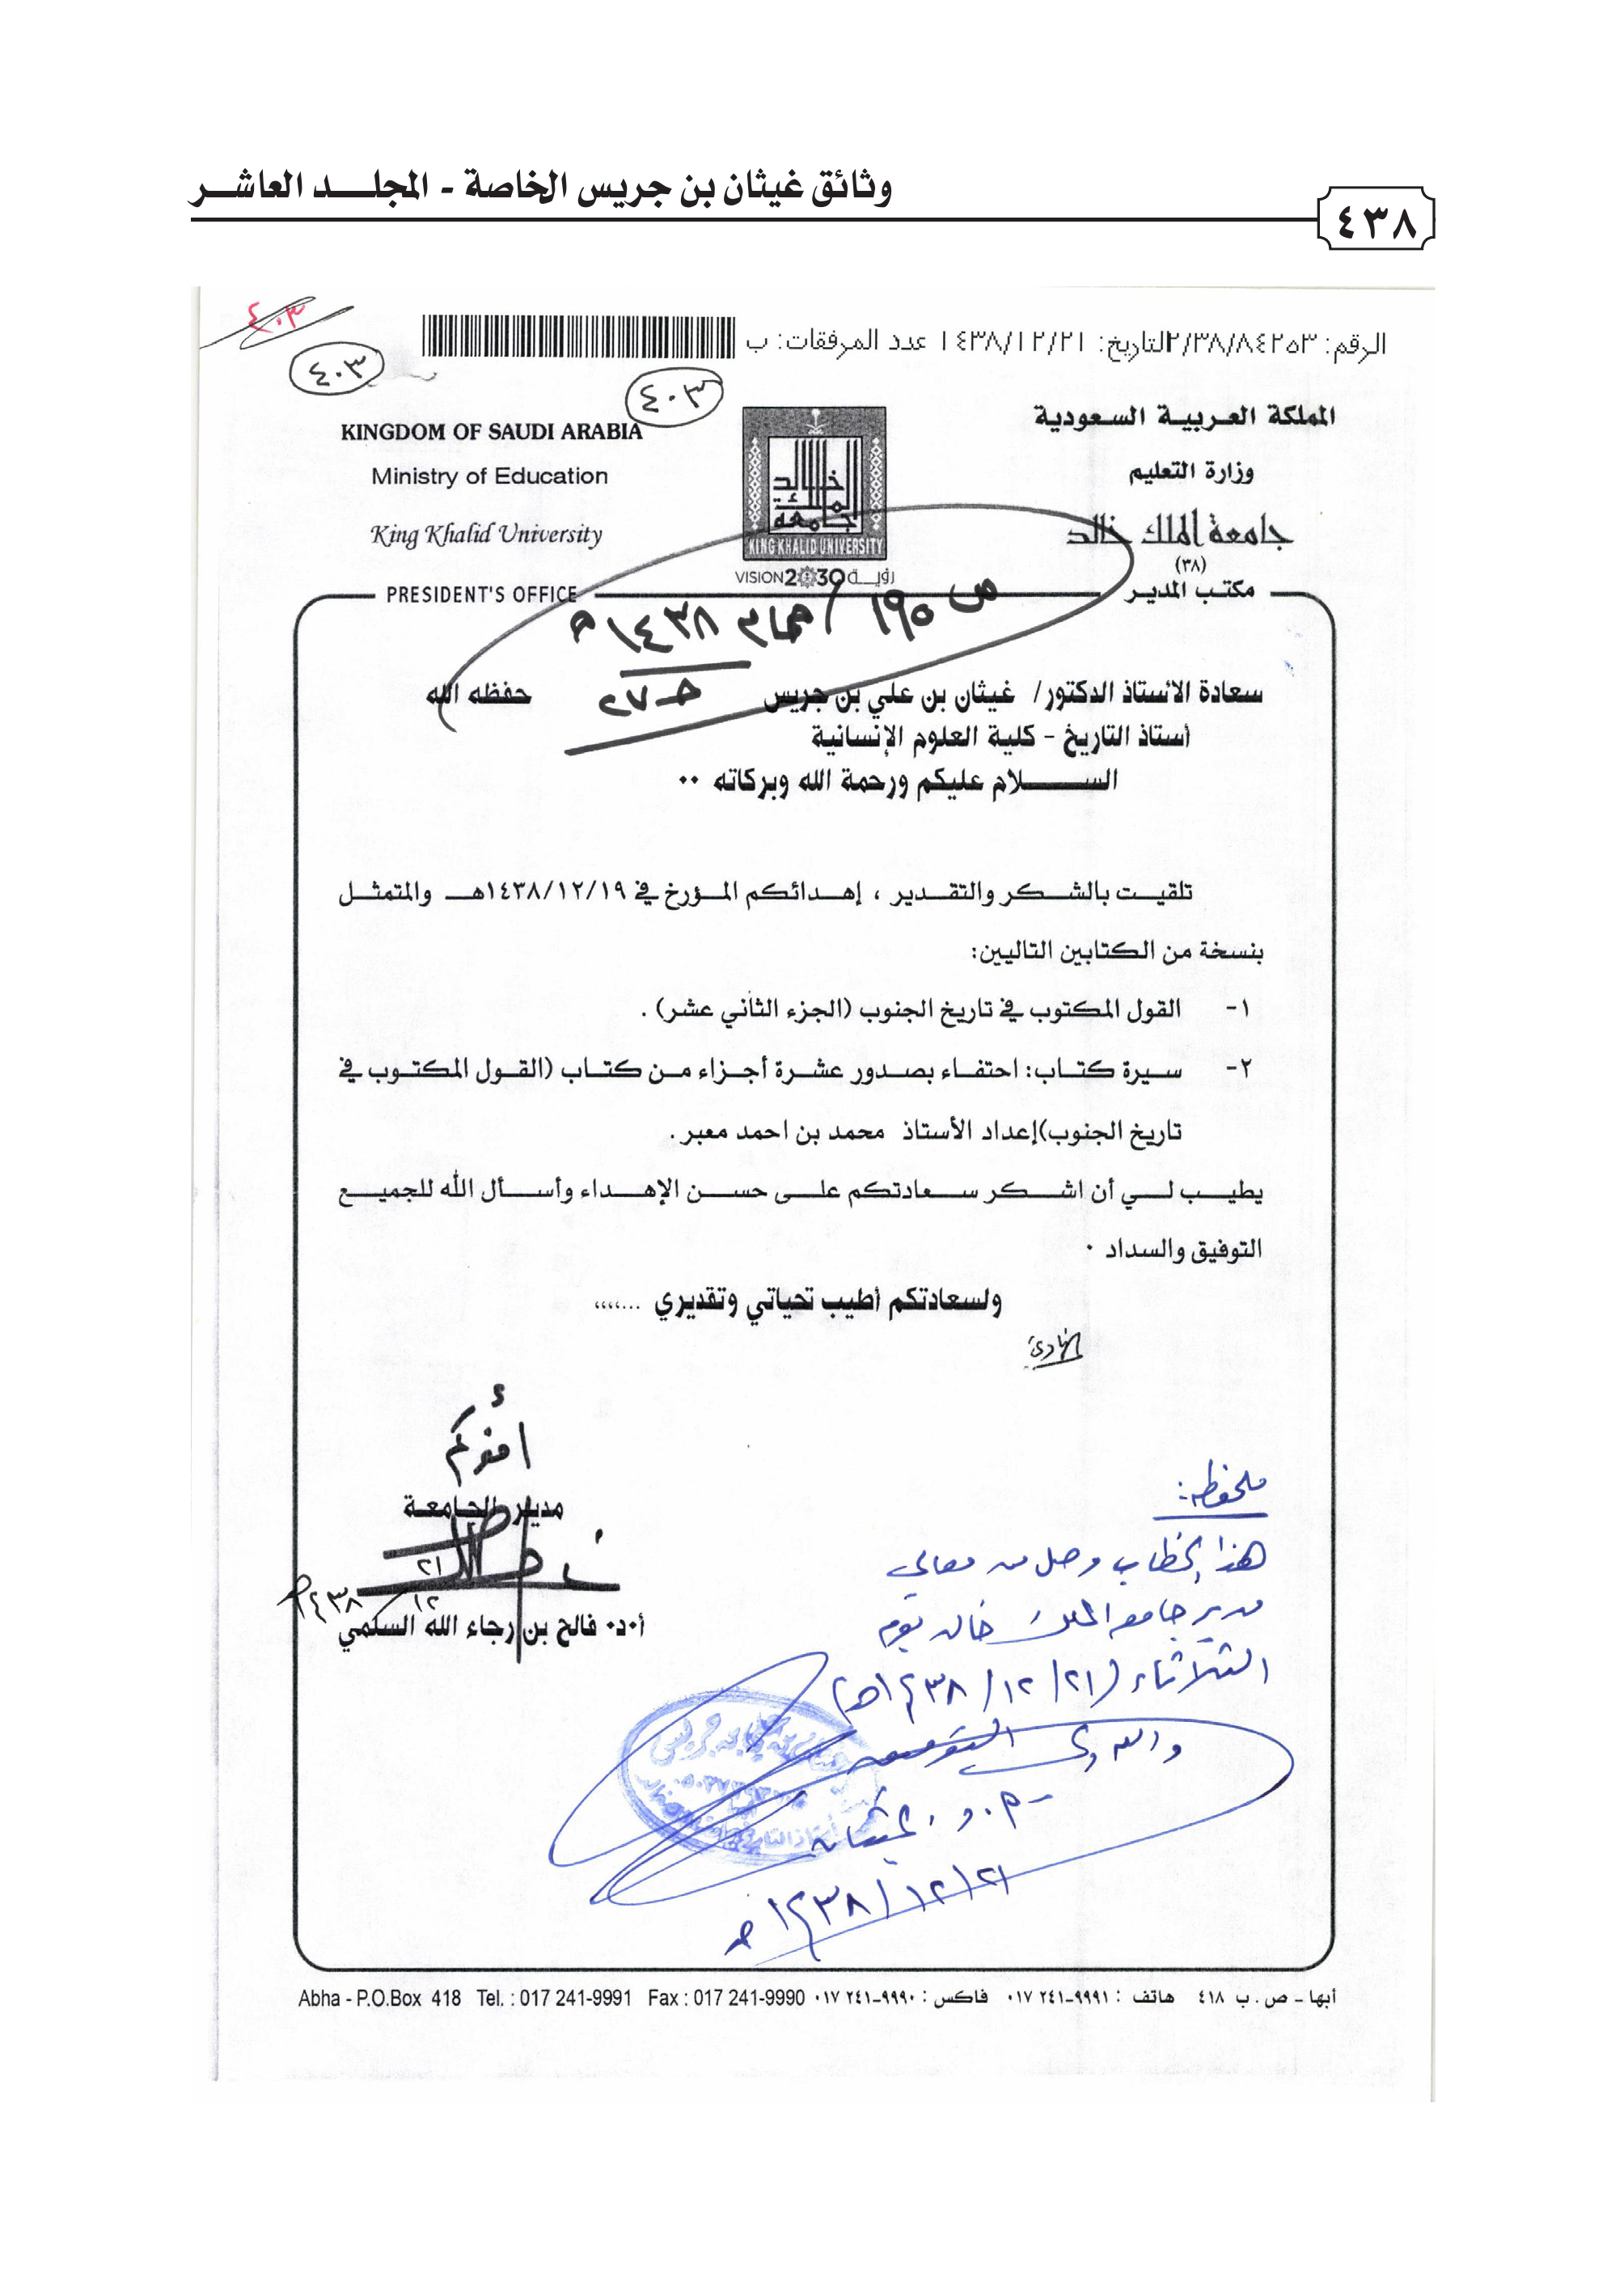 وثائق غيثان بن جريس الخاصة - المجلـــد العاشـــر
٤٣٨
٤٠٣
الرقم: ٢/٣٨/٨٤٢٥٣التاريخ: ١٤٣٨/١٢/٢١ عدد المرفقات: ب
٤٠٣
٤٠٣
المملكة العربية السعودية
وزارة التعليم
جامعة الملك خالد
(٣٨)
مكتب المدير
KINGDOM OF SAUDI ARABIA
Ministry of Education
King Khalid University
PRESIDENT'S OFFICE
جامعة الملك خالد
KING KHALID UNIVERSITY
VISION 2030 رؤيـــة
١٤٣٨ هـ
سعادة الأستاذ الدكتور/ غيثان بن علي بن جريس حفظه الله
أستاذ التاريخ - كلية العلوم الإنسانية
الســـــلام عليكم ورحمة الله وبركاته ٠٠
تلقيت بالشكر والتقدير ، إهدائكم المؤرخ في ١٤٣٨/١٢/١٩هـ والمتمثل
بنسخة من الكتابين التاليين:
١- القول المكتوب في تاريخ الجنوب (الجزء الثاني عشر) .
٢- سيرة كتاب: احتفاء بصدور عشرة أجزاء من كتاب (القول المكتوب في
تاريخ الجنوب)إعداد الأستاذ محمد بن احمد معبر.
يطيب لي أن اشكر سعادتكم على حسن الإهداء وأسأل الله للجميع
التوفيق والسداد ٠
ولسعادتكم أطيب تحياتي وتقديري ...،،،،
أخوكم
مدير الجامعة
٢١
١٢
١٤٣٨هـ
أ٠د٠ فالح بن رجاء الله السلمي
ملحوظة:
هذا الخطاب وصل من معالي
مدير جامعة الملك خالد يوم
الثلاثاء (٢١/١٢/١٤٣٨هـ)
والله ولي التوفيق
أ.د. غيثان
٢١/١٢/١٤٣٨هـ
Abha - P.O.Box 418 Tel. : 017 241-9991 Fax : 017 241-9990 أبها - ص . ب ٤١٨ هاتف : ٩٩٩١-٢٤١ ٠١٧ فاكس : ٩٩٩٠-٢٤١ ٠١٧